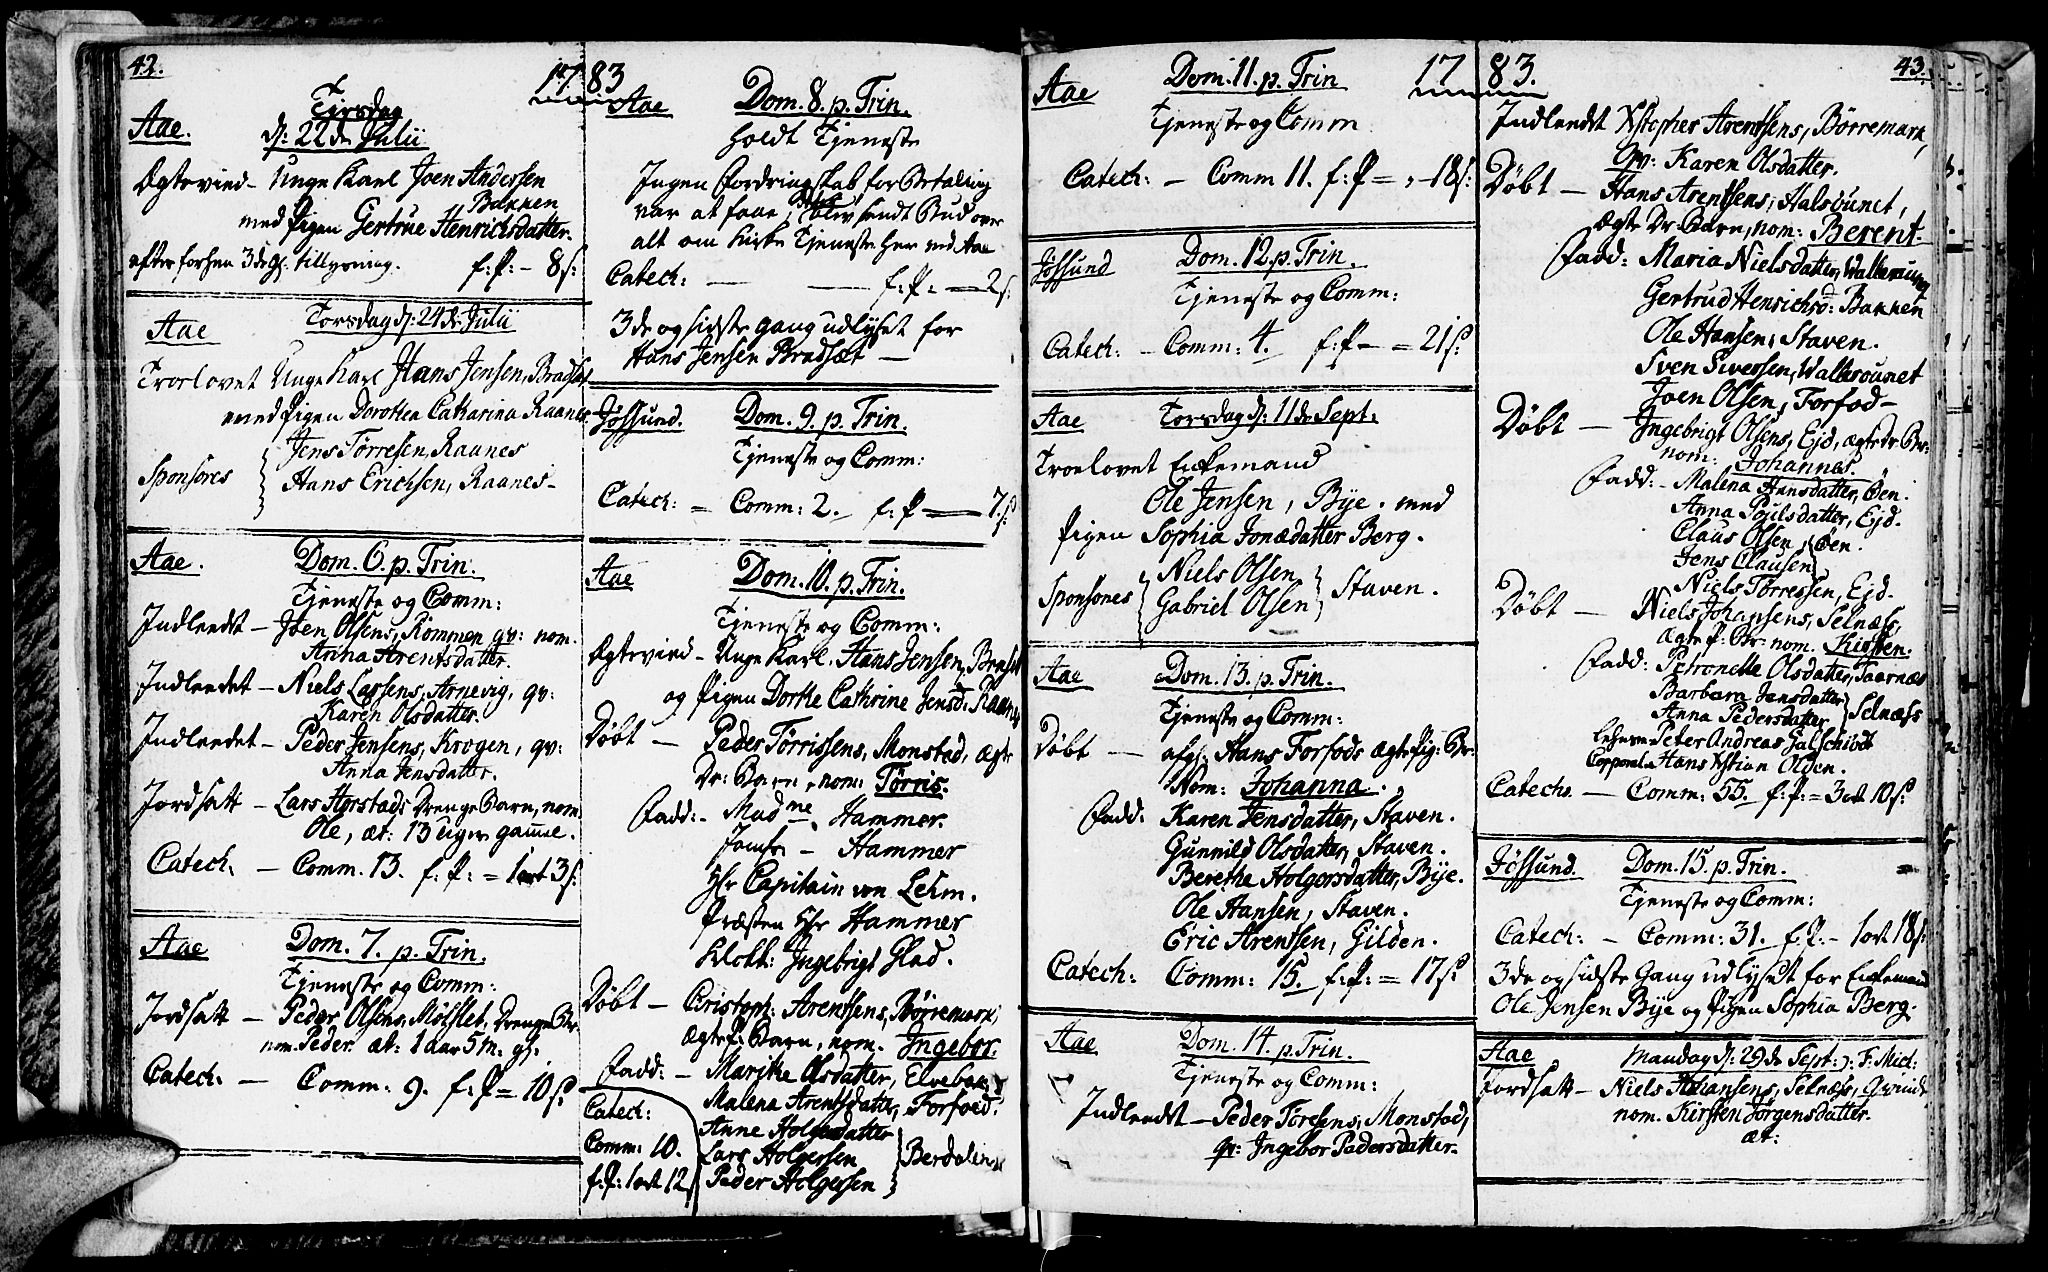 42.
1783
Tijsdag
Aae. d: 22de Julii
Ægtevied - Unge Karl Joen Andersen
Bakken
med Pigen Gertrue Henrichsdatter.
efter forhen 3de g: tillysning. f: P: - 8 s:
Aae Torsdag d: 24de Julii
Troelovet Unge Karl Hans Jensen, Bradsæt
med Pigen Dorothea Catharina Raanes
Jens Tørresen, Raanes
Sponsores
Hans Erichsen, Raanes -
Aae. Dom. 6. p. Trin.
Tjeneste og Comm:
Indleedt - Joen Olsens, Kommen, qv: nom.
Anna Arentsdatter.
Indleedet - Niels Larsens, Arnevig, qv:
Karen Olsdatter.
Indleedet - Peder Jensens, Krogen, qv:
Anna Jensdatter.
Jordsatt - Lars Harstads Drenge Barn, nom.
Ole, æt: 13 uger gamle.
Catech: - Comm. 13. f: P: = 1 ort 3 s:
Aae Dom. 7. p. Trin.
Tjeneste og Comm:
Jordsatt - Peder Olsens, Mølslet, Drenge Br.
nom. Peder. æt: 1 aar 5 m. gl.
Catech: - Comm: 9. f: P = 10 s:
Aae Dom. 8. p. Trin.
holdt Tjeneste
Ingen fordringskab for Betaling
var at faae, blev sendt Bud over
alt om Kirke Tjeneste her ved Aae
Catech: — — f: P: — 2 s:
3de og sidste gang udlyset for
Hans Jensen Bradsæt —
Jøssund. Dom. 9. p. Trin.
Tjeneste og Comm:
Catech: = Comm: 2. f: P — 7. s:
Aae Dom. 10. p. Trin.
Tjeneste og Comm:
Ægtevied - Unge Karl. Hans Jensen, Bradsæt
og Pigen Dorthe Cathrine Jensd: Raanes
Døbt — Peder Tørrissens, Monstad, ægte
Dr: Barn, nom: Tørris.
Fadd: - Mad me Hammer.
Jomfr - Hammer
Hr Capitain von Lehm.
Præsten Hr Hammer
Klokk: Ingebrigt Glad.
Døbt — Cristoph: Arentsens, Børremark,
ægte P: Barn, nom. Ingebor.
Fadd: - Marithe Olsdatter, Elvebak
Malena Arentsdatter, Forfoed.
Anne Holgersdatter
Lars Holgersen Berdalen
Peder Holgersen
Catech:
Comm: 10.
f: P: 1 ort 12 s
Aae Dom. 11. p. Trin
Tjeneste og Comm
Catech: - Comm 11. f: P = 18 s:
Jøssund Dom. 12. p. Trin.
Tjeneste og Comm:
Catech: - Comm: 4. f: P - = 21 s:
Aae Torsdag d: 11de Sept:
Troelovet Enkemand
Ole Jensen, Bye. med
Pigen Sophia Jonædatter Berg.
Niels Olsen
Sponsores Staven.
Gabriel Olsen
Aae Dom. 13. p. Trin.
Tjeneste og Comm:
Døbt — afg: Hans Forfods ægte Pig: Br:
Nom: Johanna.
Fadd: Karen Jensdatter, Staven.
Gunnild Olsdatter, Staven.
Berethe Holgersdatter, Bye.
Ole Hansen, Staven.
Eric Arentsen, Gilden.
Catech: Comm: 15. f: P: = 17 s:
Aae Dom. 14. p. Trin.
Tjeneste og Comm:
Indleedt - Peder Tøresens, Monstad,
qv: Ingebor Pedersdatter.
1783.
43.
Indleedet Xstopher Arentsens, Børremark,
qv: Karen Olsdatter.
Døbt — Hans Arentsens, Halsounet,
ægte Dr Barn, nom: Berent.
Fadd: Maria Nielsdatter, Walleraunet
Gertrud Henrichsd: Bakken
Ole Hansen, Staven.
Sven Sivertsen, Wallerounet
Joen Olsen, Forfod -
Døbt — Ingebrigt Olsens, Ejd, ægte Dr Br:
nom: Johannes.
Fadd: - Malena Hansdatter, Øen.
Anna Poulsdatter, Ejd.
Claus Olsen
Øen.
Jens Clausen
Niels Tørressen, Ejd.
Døbt — Niels Johansens, Selnæss,
ægte P: Br. nom. Kirsten.
Fadd: Petronelle Olsdatter, Taarnæs
Barbara Jensdatter
Selnæss
Anna Pedersdatter
Peter Andreas Galschiødt
Corporal Hans Xstian Olden.
Catech. — Comm: 55. f: P: = 3 ort 10 s:
Jøssund. Dom. 15. p. Trin.
Tjeneste og Comm:
Catech: - Comm: 31. f: P. - 1 ort. 18 s:
3de og sidste Gang udlyset for Enkemand
Ole Jensen Bye og Pigen Sophia Berg.
Aae Mandag d: 29de Sept: F. Mich:
Jordsatt - Niels Johansens, Selnæss, Qvinde
nom. Kirsten Jørgensdatter.
æt: